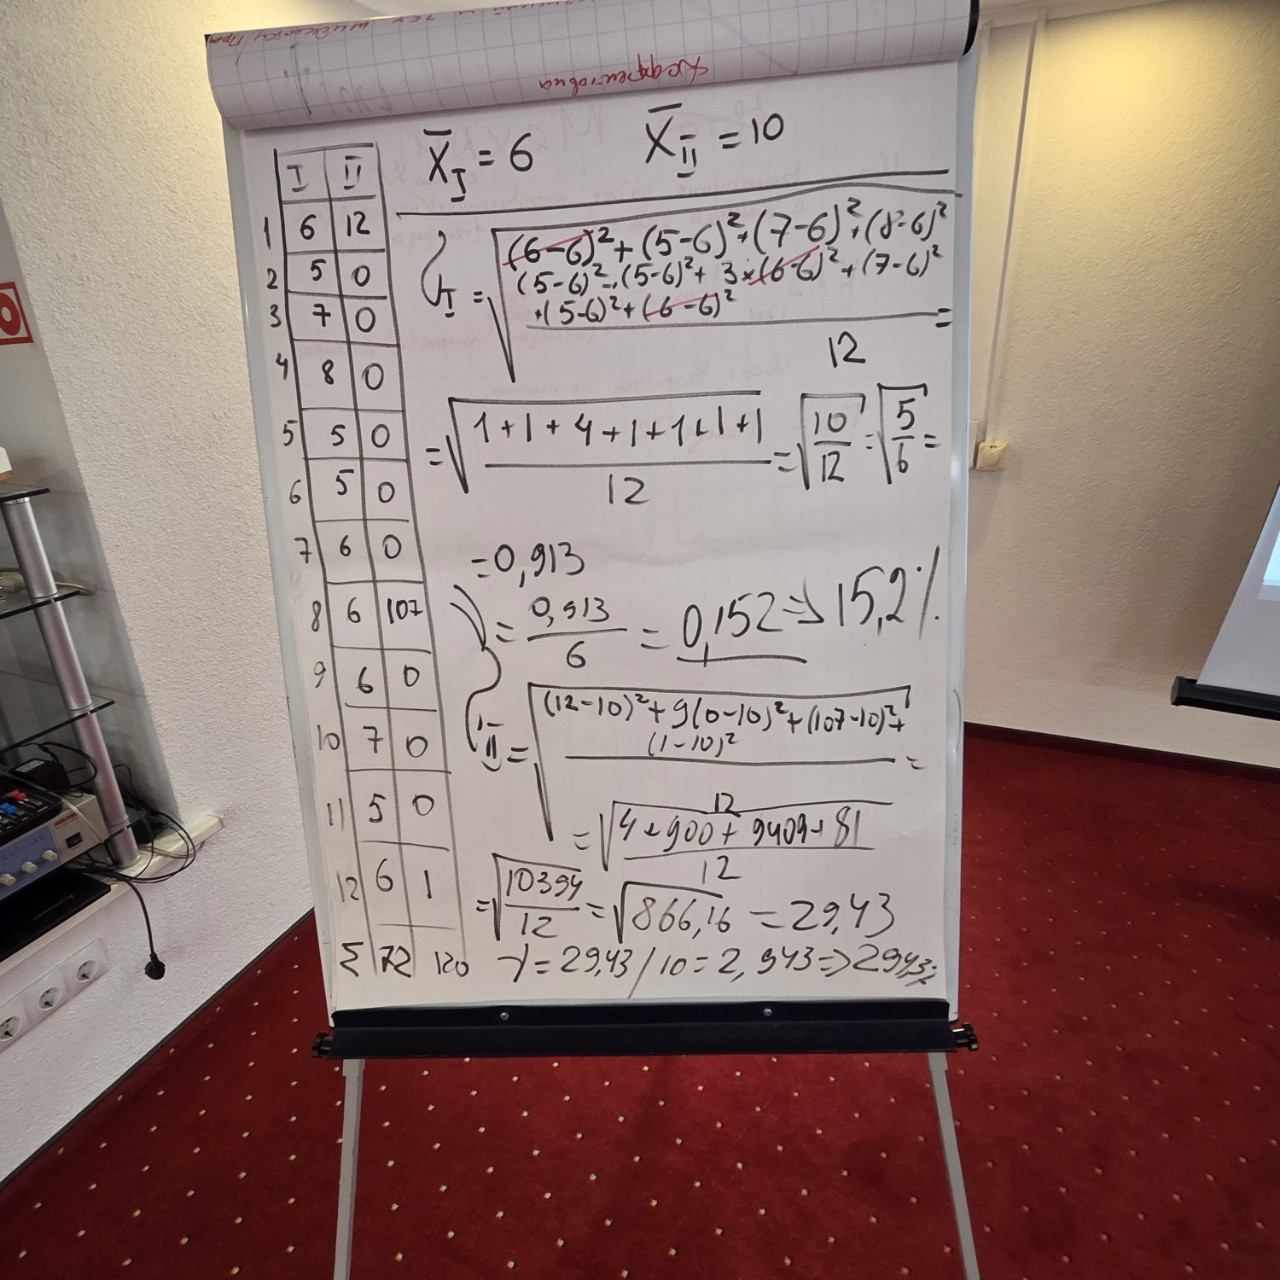 X̄_I = 6   X̄_II = 10
I II
1 6 12
2 5 0
3 7 0
4 8 0
5 5 0
6 5 0
7 6 0
8 6 107
9 6 0
10 7 0
11 5 0
12 6 1
Σ 72 120
I = √ (6-6)² + (5-6)² + (7-6)² + (8-6)²
(5-6)² + (5-6)² + 3×(6-6)² + (7-6)²
+ (5-6)² + (6-6)² =
12
= √ 1+1+4+1+1+1+1 = √ 10 = √ 5 =
12 12 6
= 0,913
= 0,913 = 0,152 ⇒ 15,2%
6
II = √ (12-10)² + 9(0-10)² + (107-10)² +
(1-10)² =
12
= √ 4+900+9409+81
12
= √ 10394 = √866,16 = 29,43
12
= 29,43/10 = 2,943 ⇒ 294,3%